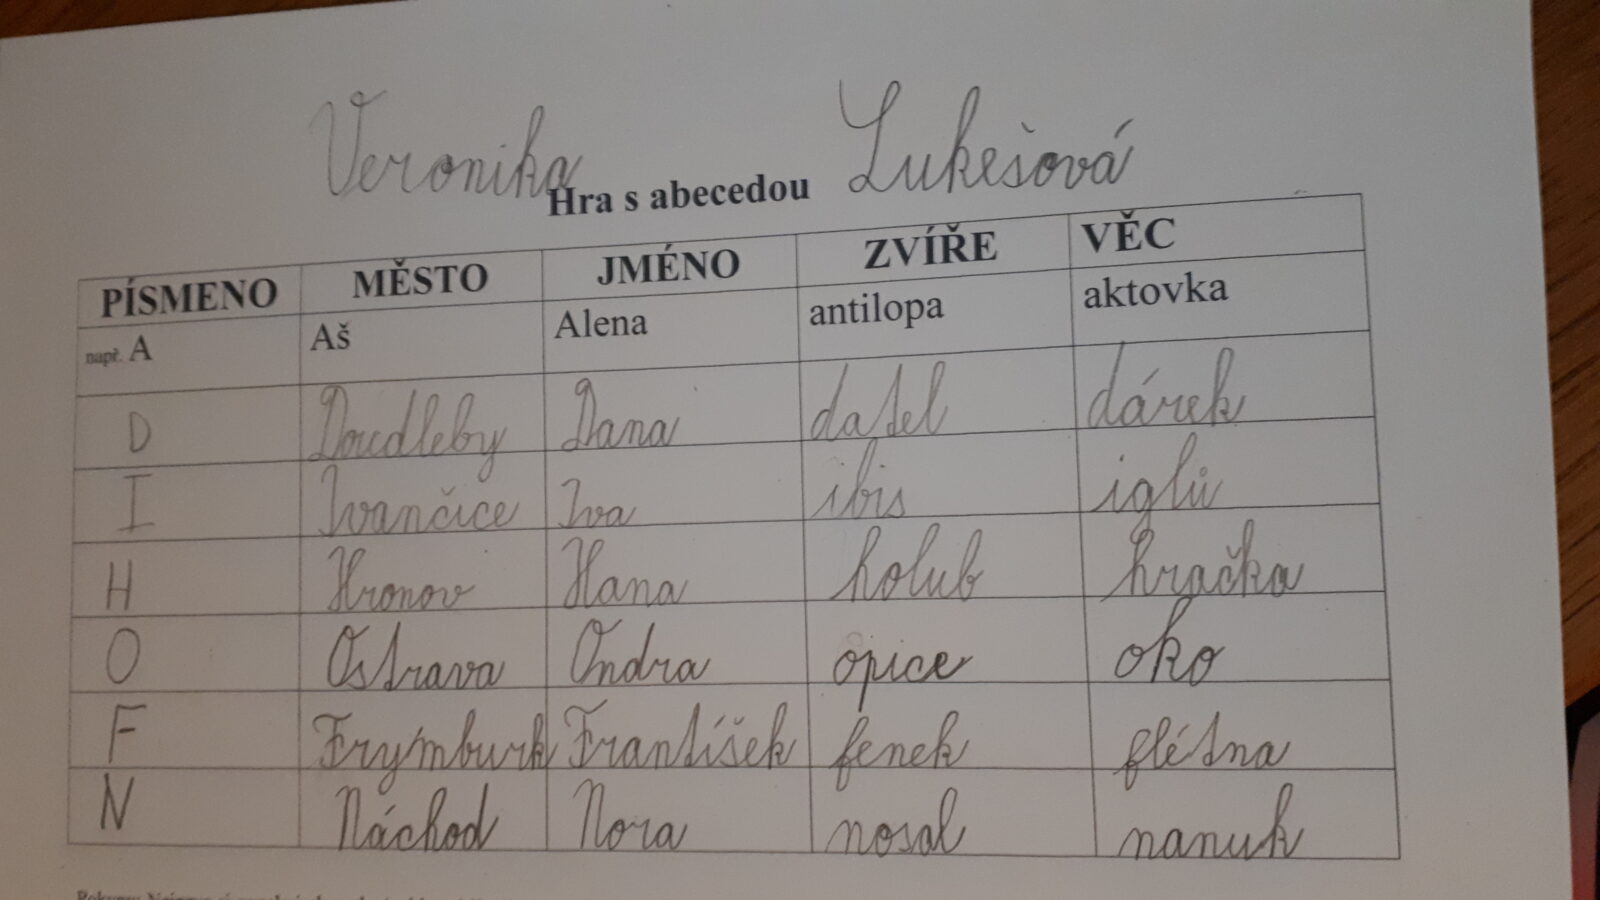 Veronika Lukešová
Hra s abecedou
PÍSMENO MĚSTO JMÉNO ZVÍŘE VĚC
např. A Aš Alena antilopa aktovka
D Doudleby Dana datel dárek
I Ivančice Iva ibis iglů
H Hronov Hana holub hračka
O Ostrava Ondra opice oko
F Frýmburk František fenek flétna
N Náchod Nora nosál nanuk